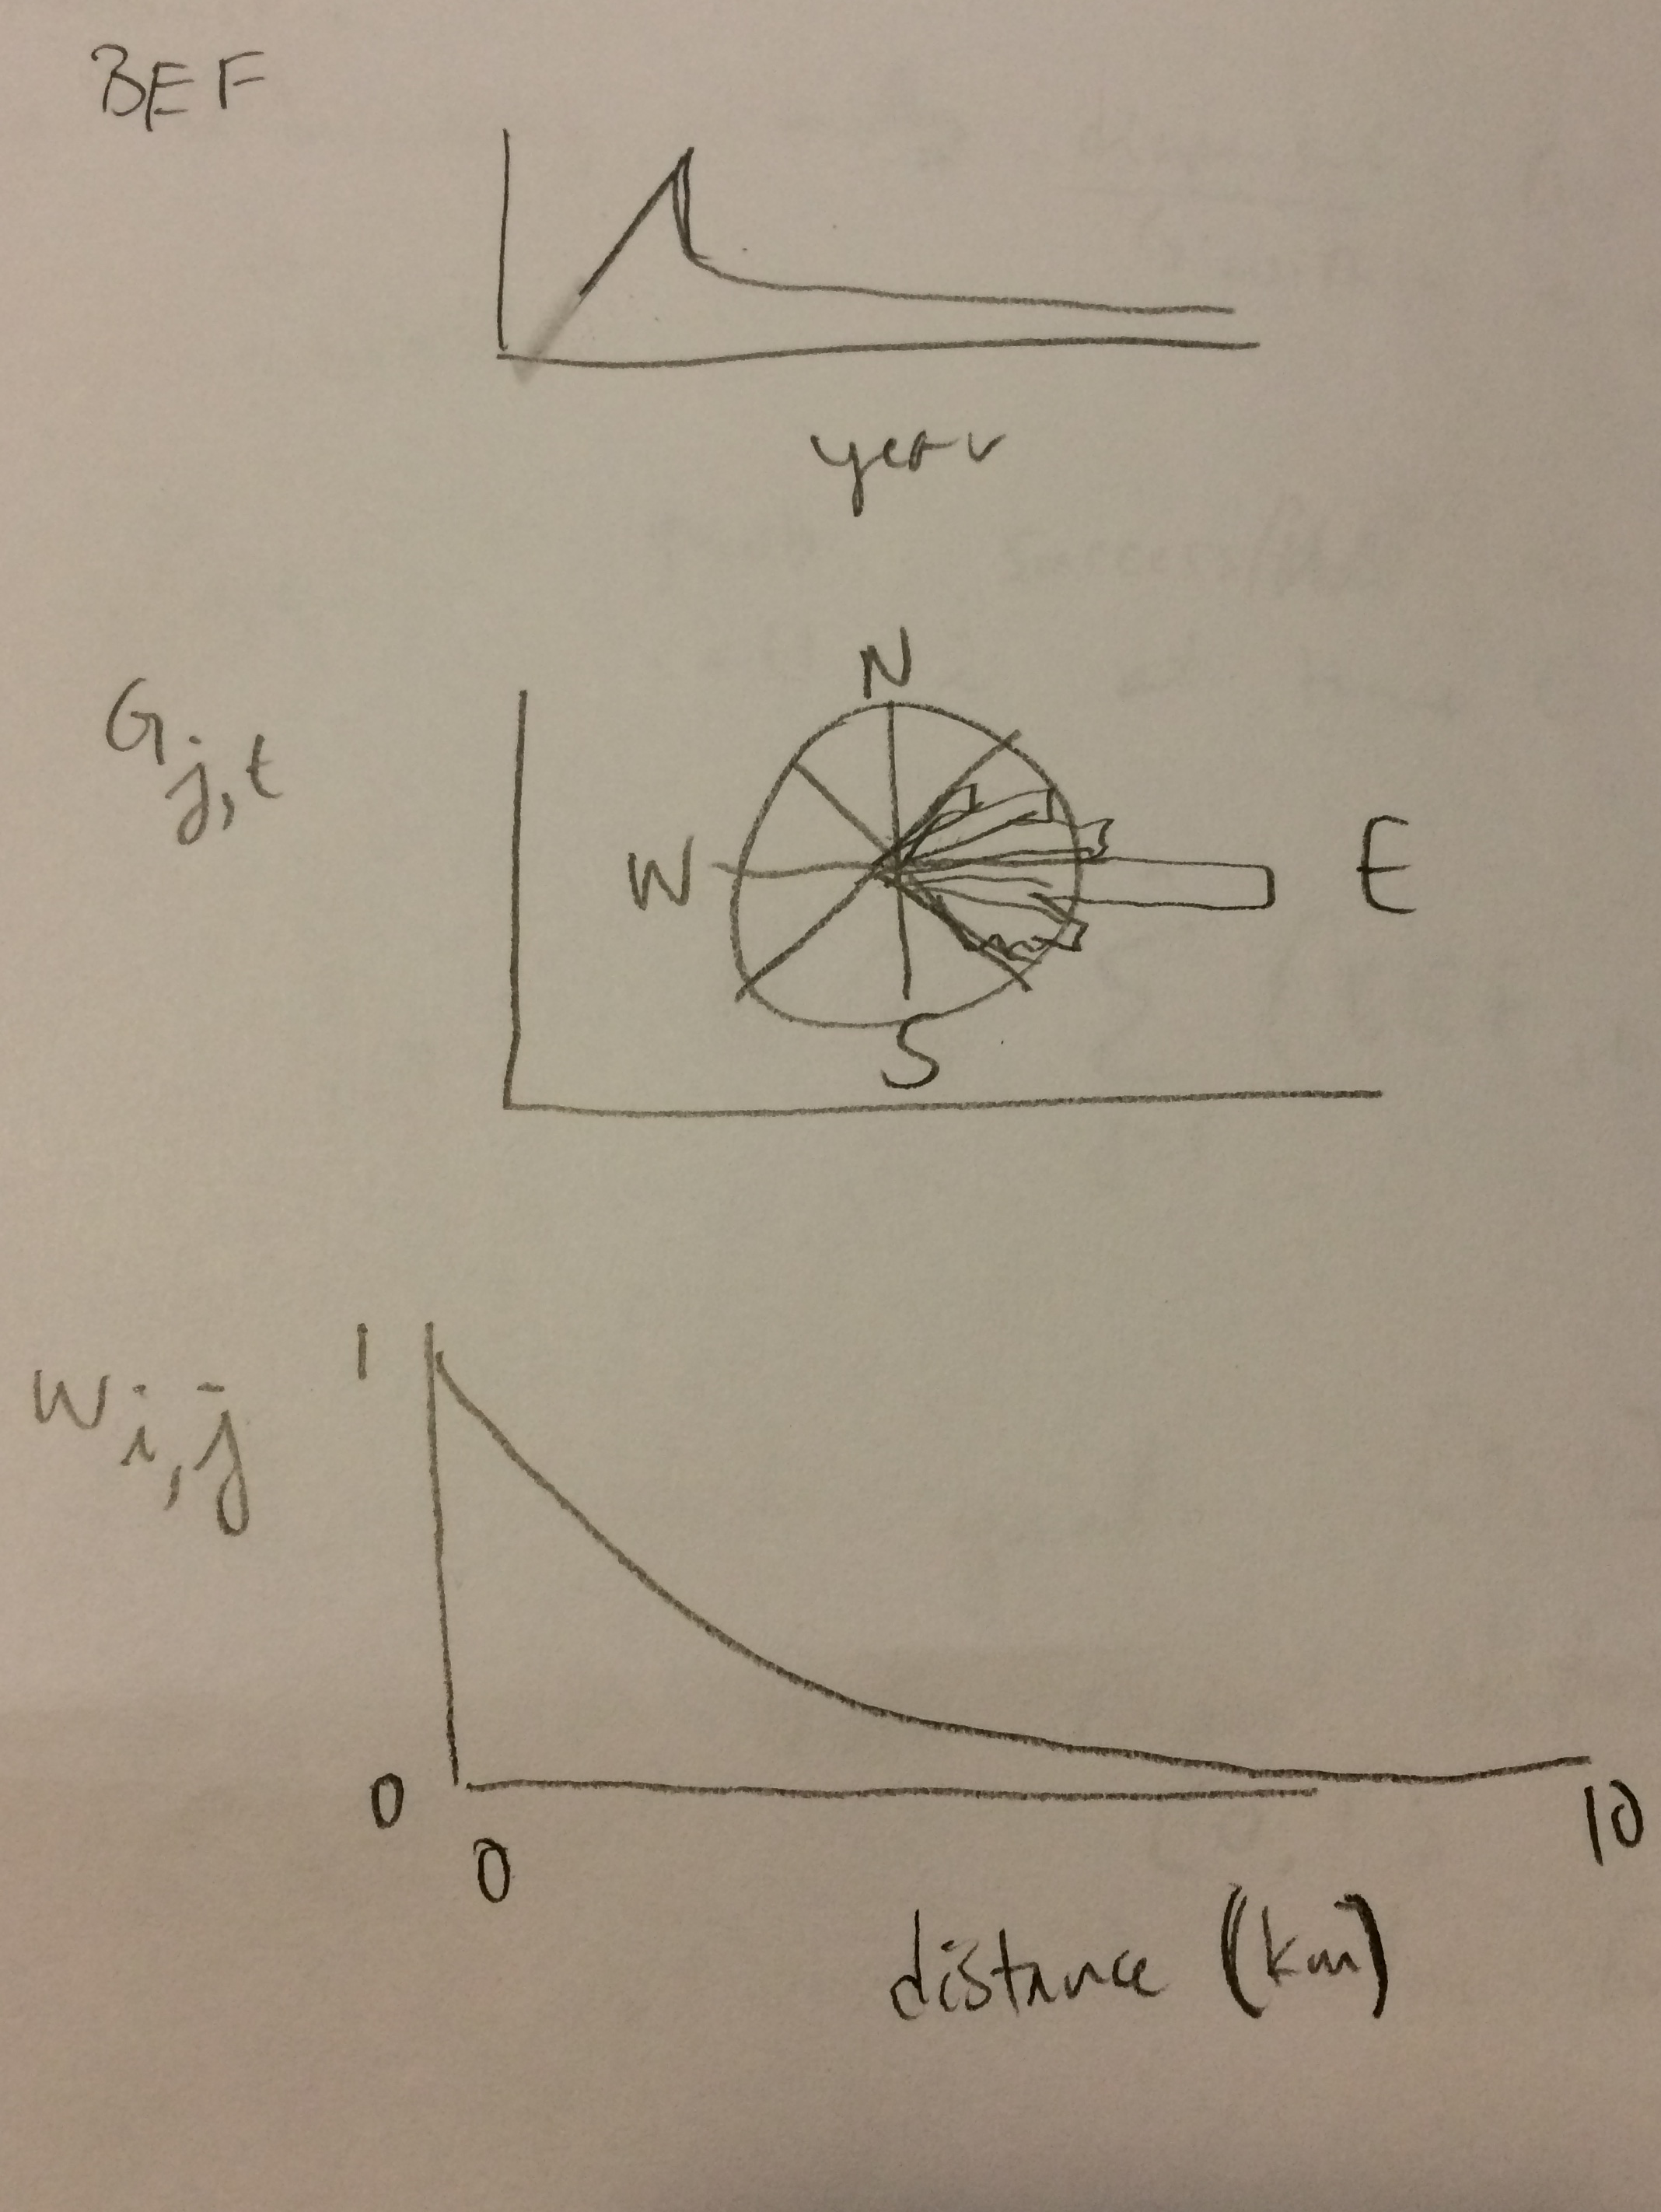 BEF
year
N
G j,t
W E
S
1
W i,j
0
0 10
distance (km)